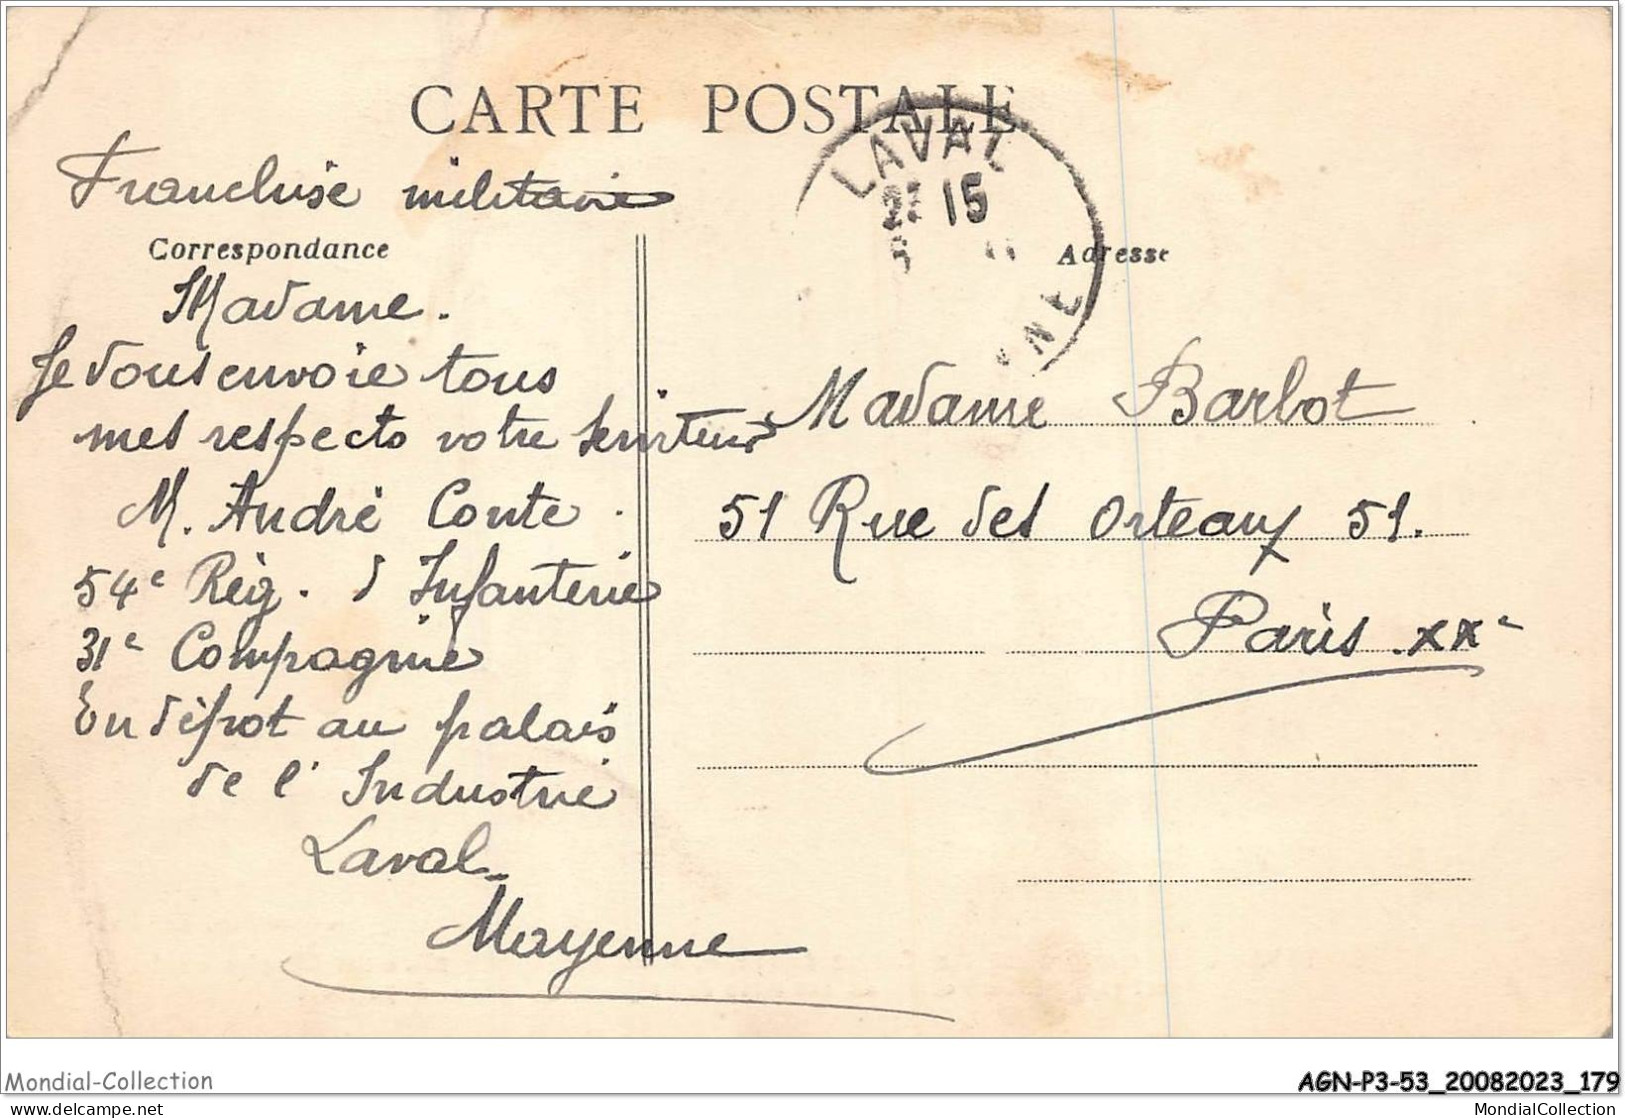 CARTE POSTALE
Franchise militaire
LAVAL
15
Correspondance
Adresse
Madame.
Je vous envoie tous
mes respects votre serviteur
M. André Conte.
54e Rég. d Infanterie
31e Compagnie
En dépot au palais
de l' Industrie
Laval
Mayenne
Madame Barbot
51 Rue des Orteaux 51.
Paris XXe
Mondial-Collection
AGN-P3-53_20082023_179
delcampe.net
MondialCollection